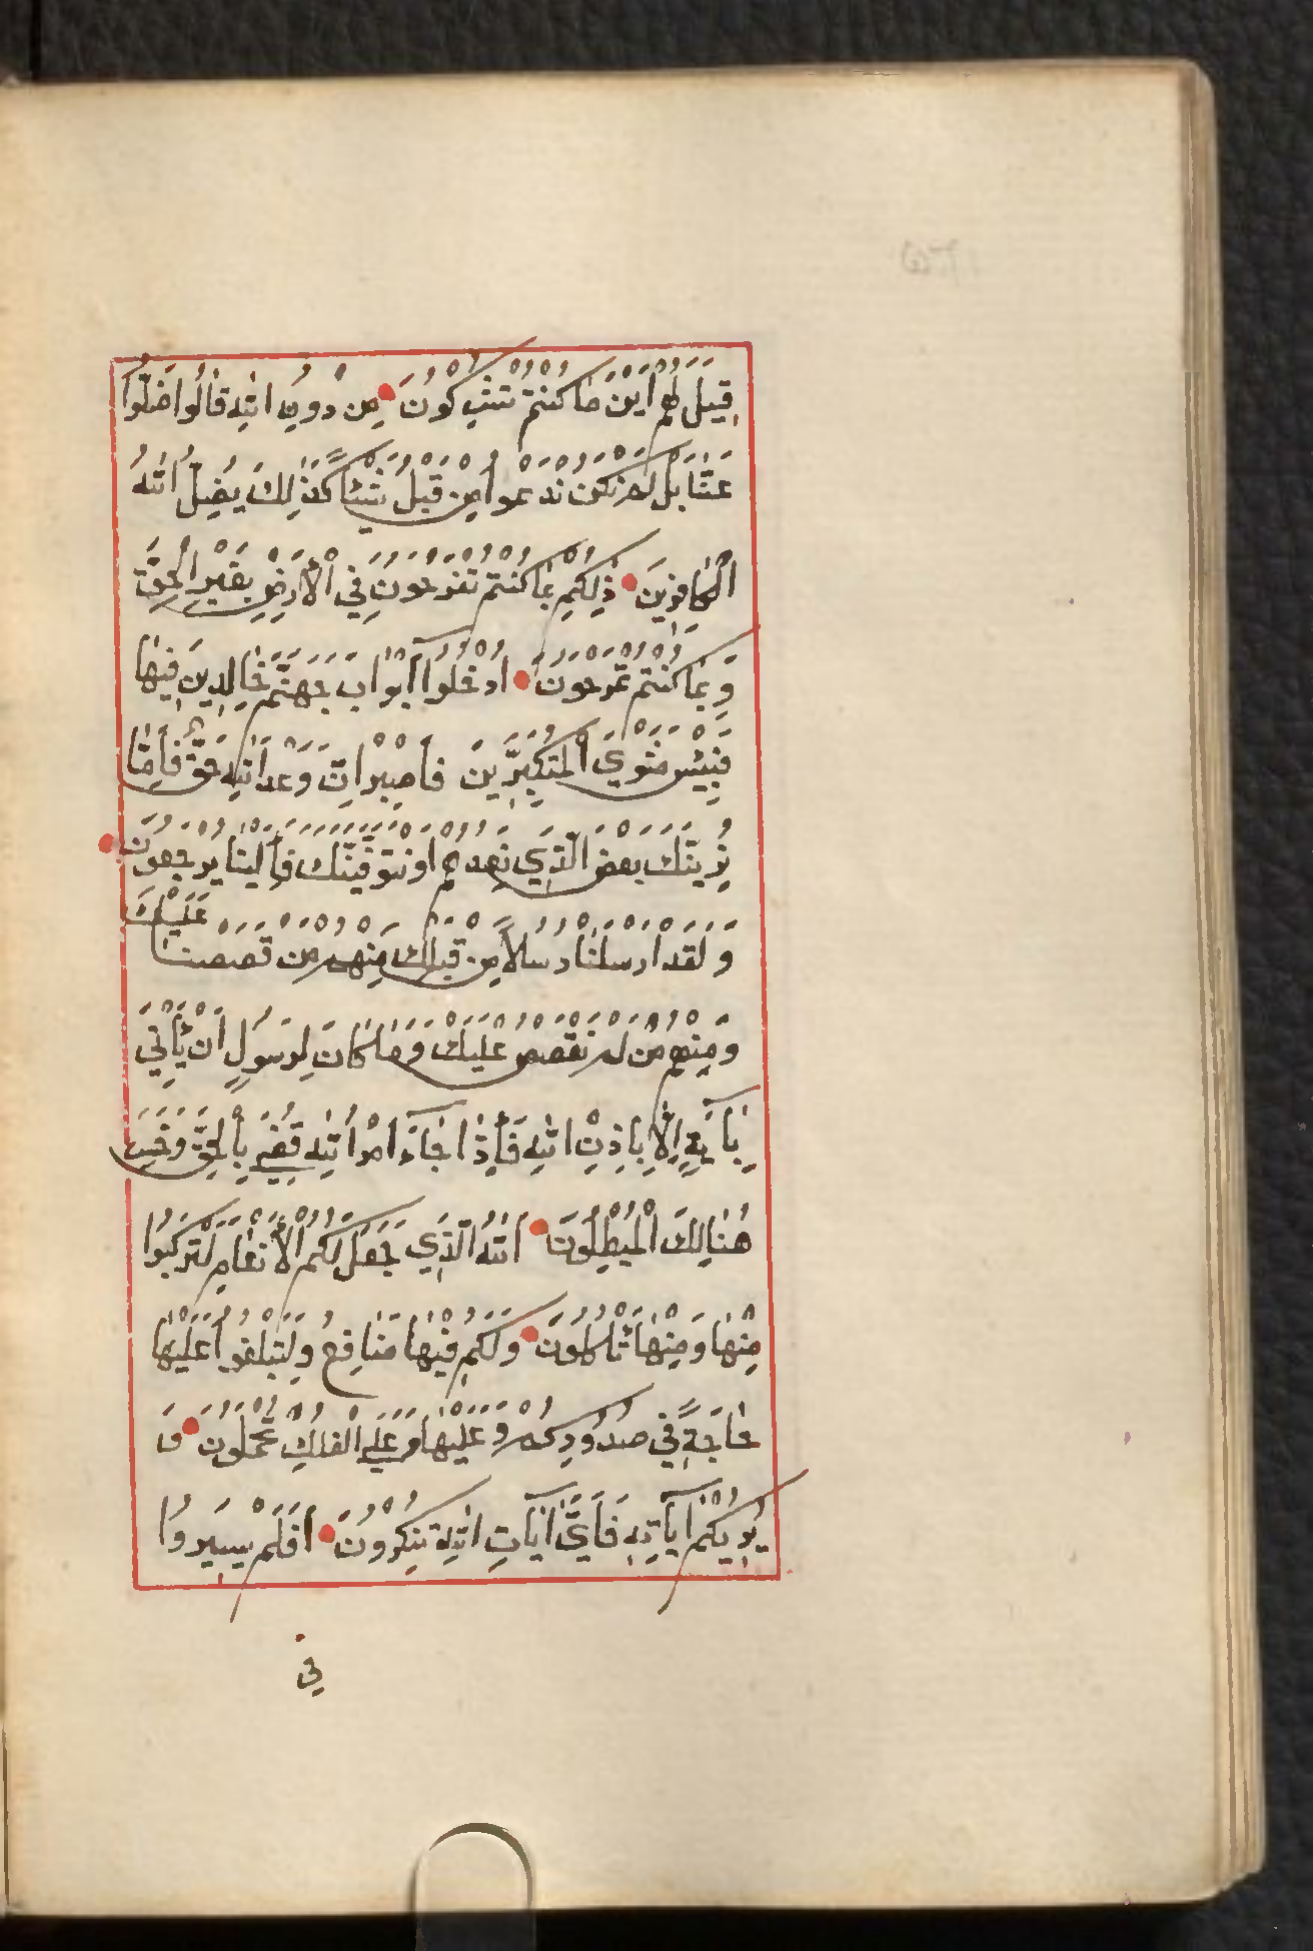 قِيلَ لَهُمْ أَيْنَ مَا كُنْتُمْ تُشْرِكُونَ مِنْ دُونِ اللّٰهِ قَالُوا ضَلُّوا
عَنَّا بَلْ لَمْ نَكُنْ نَدْعُوا مِنْ قَبْلُ شَيْئًا كَذٰلِكَ يُضِلُّ اللّٰهُ
الْكَافِرِينَ ذٰلِكُمْ بِمَا كُنْتُمْ تَفْرَحُونَ فِي الْأَرْضِ بِغَيْرِ الْحَقِّ
وَبِمَا كُنْتُمْ تَمْرَحُونَ ادْخُلُوا أَبْوَابَ جَهَنَّمَ خَالِدِينَ فِيهَا
فَبِئْسَ مَثْوَى الْمُتَكَبِّرِينَ فَاصْبِرْ إِنَّ وَعْدَ اللّٰهِ حَقٌّ فَإِمَّا
نُرِيَنَّكَ بَعْضَ الَّذِي نَعِدُهُمْ أَوْ نَتَوَفَّيَنَّكَ فَإِلَيْنَا يُرْجَعُونَ
وَلَقَدْ أَرْسَلْنَا رُسُلًا مِنْ قَبْلِكَ مِنْهُمْ مَنْ قَصَصْنَا عَلَيْكَ
وَمِنْهُمْ مَنْ لَمْ نَقْصُصْ عَلَيْكَ وَمَا كَانَ لِرَسُولٍ أَنْ يَأْتِيَ
بِآيَةٍ إِلَّا بِإِذْنِ اللّٰهِ فَإِذَا جَاءَ أَمْرُ اللّٰهِ قُضِيَ بِالْحَقِّ وَخَسِرَ
هُنَالِكَ الْمُبْطِلُونَ اللّٰهُ الَّذِي جَعَلَ لَكُمُ الْأَنْعَامَ لِتَرْكَبُوا
مِنْهَا وَمِنْهَا تَأْكُلُونَ وَلَكُمْ فِيهَا مَنَافِعُ وَلِتَبْلُغُوا عَلَيْهَا
حَاجَةً فِي صُدُورِكُمْ وَعَلَيْهَا وَعَلَى الْفُلْكِ تُحْمَلُونَ وَ
يُرِيكُمْ آيَاتِهِ فَأَيَّ آيَاتِ اللّٰهِ تُنْكِرُونَ أَفَلَمْ يَسِيرُوا
فِي